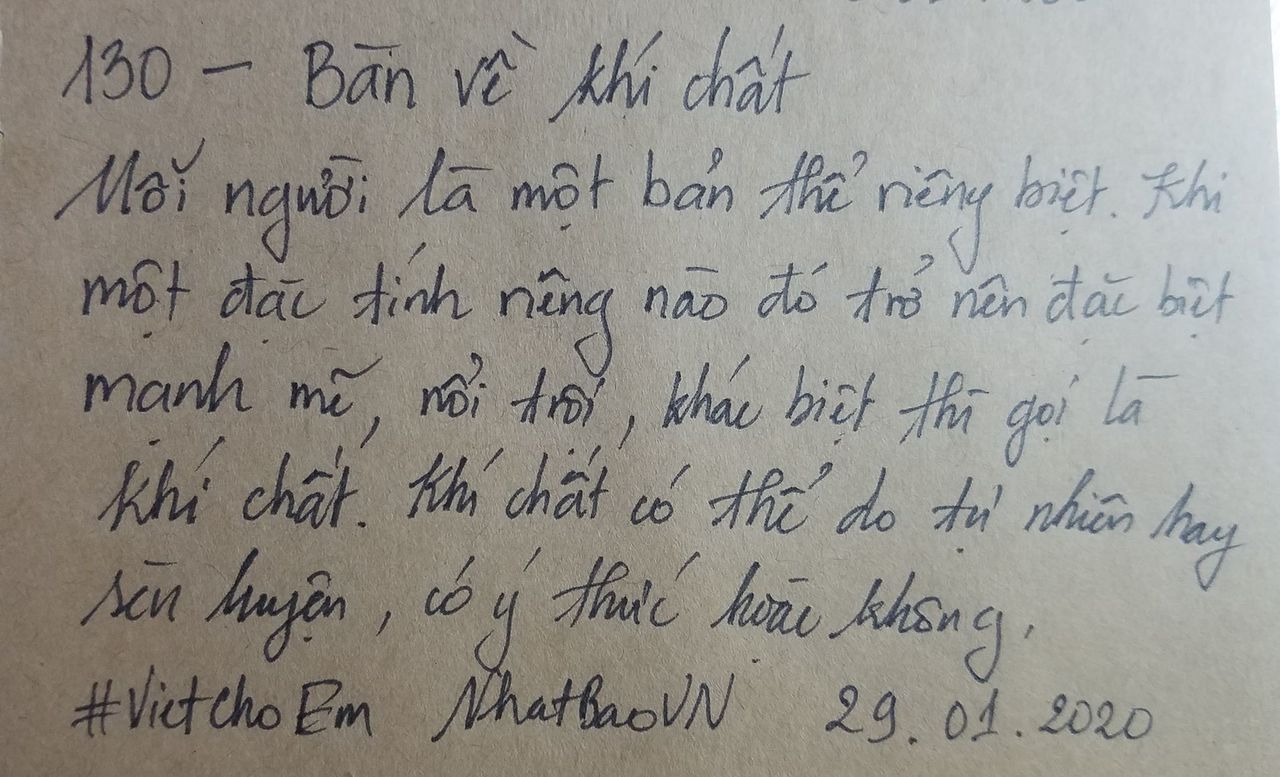 130 - Bàn về khí chất
Mỗi người là một bản thể riêng biệt. Khi
một đặc tính riêng nào đó trở nên đặc biệt
mạnh mẽ, nổi trội, khác biệt thì gọi là
khí chất. Khí chất có thể do tự nhiên hay
rèn luyện, có ý thức hoặc không.
#VietchoEm NhatBaoVN 29.01.2020